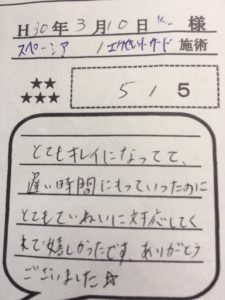 H30年3月10日 K 様
スペーシア / エクセレントガード 施術
★★
★★★
5 / 5
とてもキレイになってて、
遅い時間にもっていったのに
とてもていねいに対応してく
れて嬉しかったです。ありがとう
ございました☆